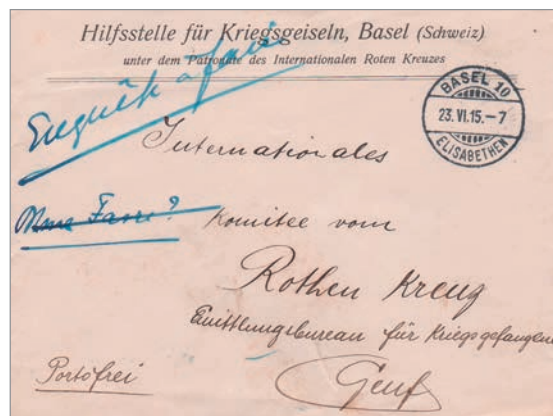 Hilfsstelle für Kriegsgeiseln, Basel (Schweiz)
unter dem Patronate des Internationalen Roten Kreuzes
Enquête à faire
BASEL 10
23.VI.15.–7
ELISABETHEN
Internationales
Mme Favre? Komitee vom
Rothen Kreuz
für Kriegsgefangene
Portofrei
Genf